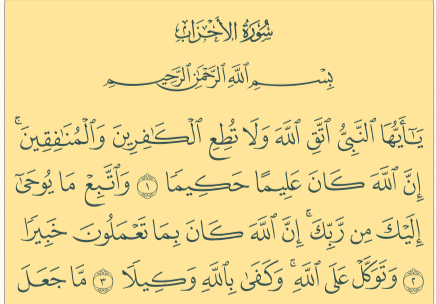 سُورَةُ الأَحْزَابِ
بِسْمِ اللَّهِ الرَّحْمَٰنِ الرَّحِيمِ
يَٰٓأَيُّهَا ٱلنَّبِىُّ ٱتَّقِ ٱللَّهَ وَلَا تُطِعِ ٱلْكَٰفِرِينَ وَٱلْمُنَٰفِقِينَ ۚ
إِنَّ ٱللَّهَ كَانَ عَلِيمًا حَكِيمًا ١ وَٱتَّبِعْ مَا يُوحَىٰٓ
إِلَيْكَ مِن رَّبِّكَ ۚ إِنَّ ٱللَّهَ كَانَ بِمَا تَعْمَلُونَ خَبِيرًا
٢ وَتَوَكَّلْ عَلَى ٱللَّهِ ۚ وَكَفَىٰ بِٱللَّهِ وَكِيلًا ٣ مَّا جَعَلَ